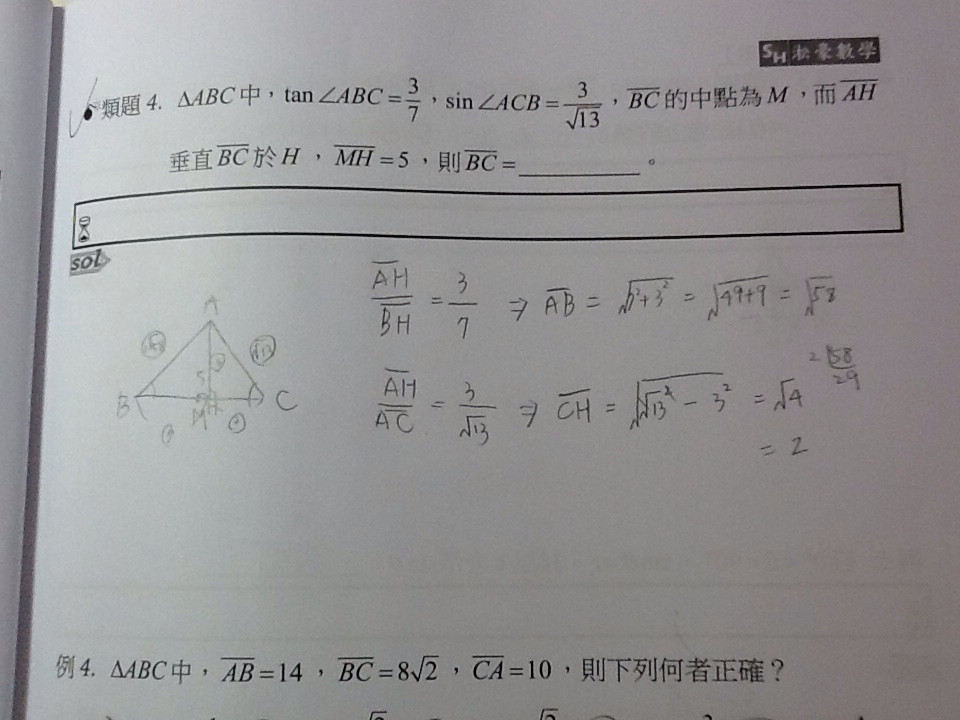 SH 淞豪數學
類題 4. ΔABC 中，tan∠ABC = 3/7，sin∠ACB = 3/√13，BC 的中點為 M，而 AH
垂直 BC 於 H，MH = 5，則 BC = ________。
sol
AH/BH = 3/7 ⇒ AB = √7²+3² = √49+9 = √58
A
√58 √13
5
B M H C
AH/AC = 3/√13 ⇒ CH = √√13² − 3² = √4
= 2
2 58
29
例 4. ΔABC 中，AB = 14，BC = 8√2，CA = 10，則下列何者正確？